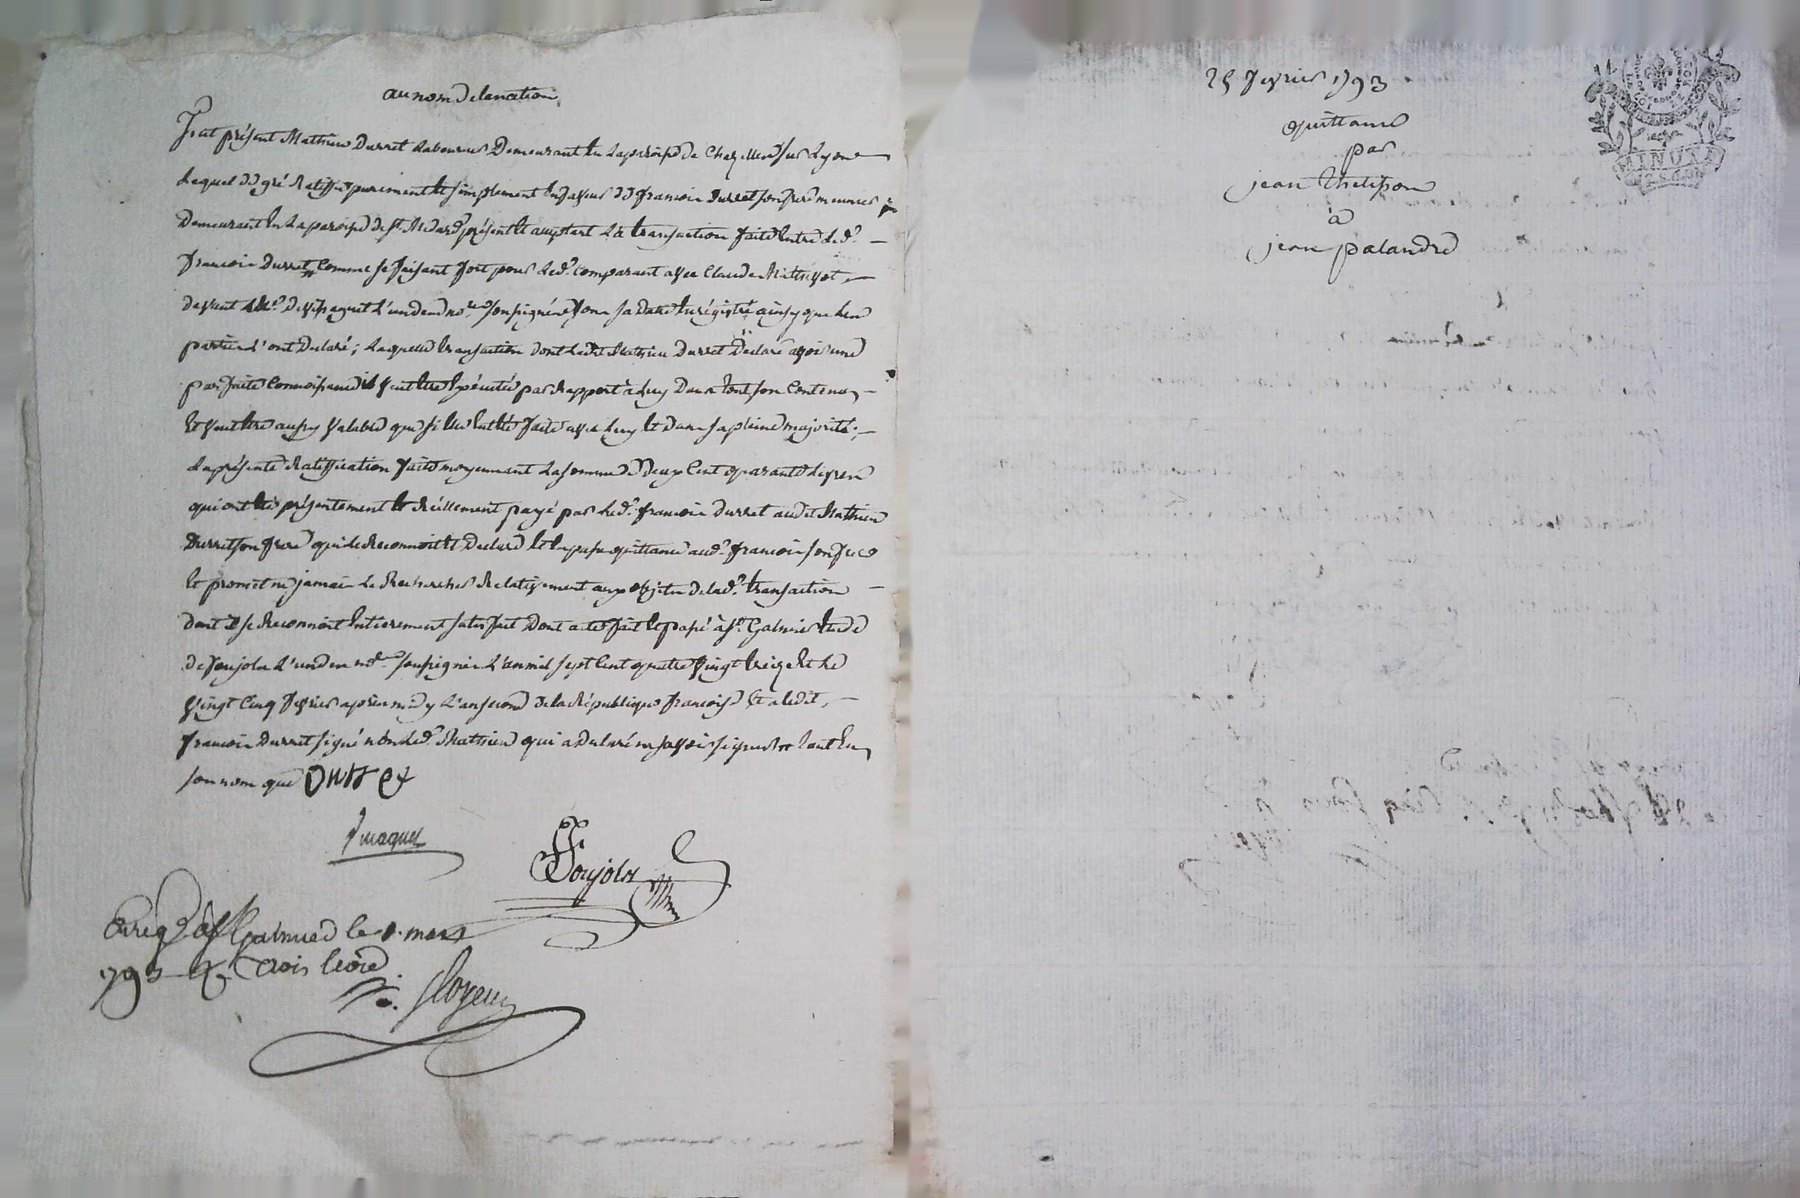 au nom de la nation
fut présent Mathieu Durret laboureur Demeurant En la paroisse de Chazelles sur Lyon
Lequel de gré Ratiffie purement et simplement En faveur de françois Durret son frere
Demeurant En la paroisse de st. Médard présent et acceptant La transaction faite Entre Led.
françois Durret Comme se faisant fort pour Led. Comparant avec Claude
devant L'un des no.res soussignés sa Date Enrégistré ainsy que Les
parties L'ont Déclaré; Laquelle transaction dont Ledit Mathieu Durret Déclare avoir une
parfaite Connoissance il veut Etre Exécutée par Rapport à Luy Dans tout son Contenu
Et veut Etre aussy valable que si Elle Eut Eté faite avec Luy Et Dans sa pleine majorité;
La présente Ratiffication faite moyennant La somme de Deux Cent quarante Livres
qui ont Eté présentement Et Réellement payé par Led. françois Durret audit Mathieu
Durret son frere qui Le Reconnoit Et Déclare Et En passe quittance aud. françois son frere
Et promet ne jamais Le Rechercher Relativement aux objets de lad. transaction
dont il se Reconnoit Entierement satisfait Dont acte fait Et passé à st. Galmier Etude
de Poujolas L'un des no.res soussignés L'an mil sept Cent quatre vingt treize Et Le
vingt Cinq fevrier après midy L'an second de la République françoise Et a Ledit
françois Durret signé non Led. Mathieu qui a Déclaré ne savoir signer tant En
son nom que Durret
Enreg. à st Galmier le mars
1793 R. trois livre
25 fevrier 1793
quittance
par
jean Thelisson
à
jean palandre
MINUTE